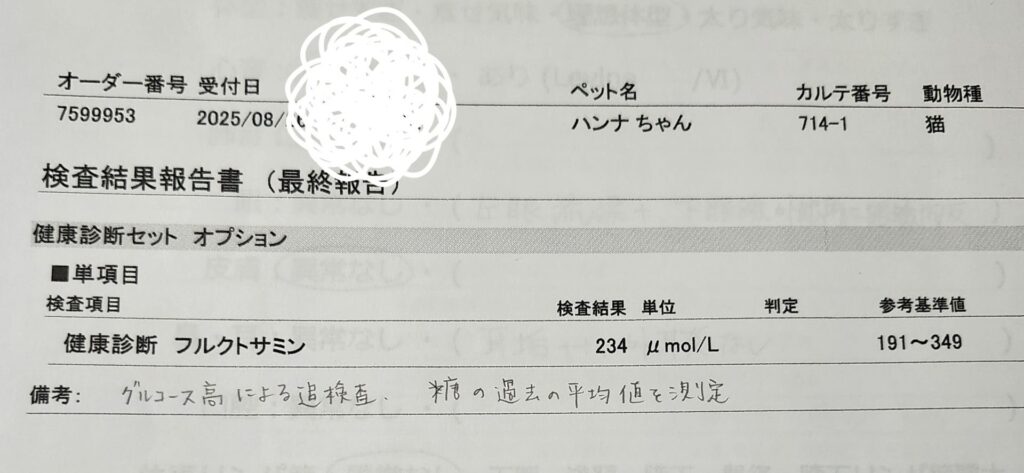 オーダー番号 受付日 ペット名 カルテ番号 動物種
7599953 2025/08/ ハンナ ちゃん 714-1 猫
検査結果報告書 （最終報告）
健康診断セット オプション
■単項目
検査項目 検査結果 単位 判定 参考基準値
健康診断 フルクトサミン 234 μmol/L 191～349
備考： グルコース高による追検査． 糖の過去の平均値を測定